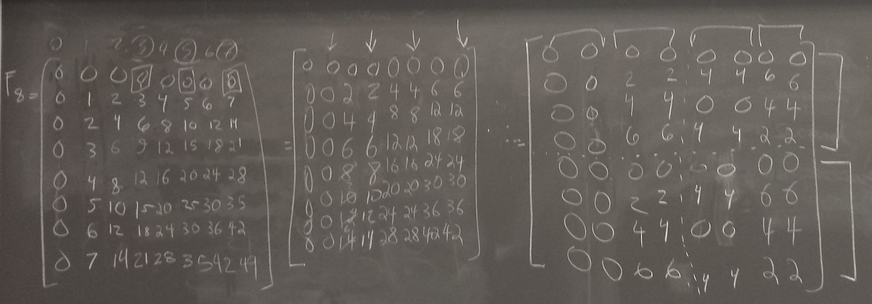 0 1 2 3 4 5 6 7
F8 =
0 0 0 0 0 0 0 0
0 1 2 3 4 5 6 7
0 2 4 6 8 10 12 14
0 3 6 9 12 15 18 21
0 4 8 12 16 20 24 28
0 5 10 15 20 25 30 35
0 6 12 18 24 30 36 42
0 7 14 21 28 35 42 49
=
0 0 0 0 0 0 0 0
0 0 2 2 4 4 6 6
0 0 4 4 8 8 12 12
0 0 6 6 12 12 18 18
0 0 8 8 16 16 24 24
0 0 10 10 20 20 30 30
0 0 12 12 24 24 36 36
0 0 14 14 28 28 42 42
... =
0 0 0 0 0 0 0 0
0 0 2 2 4 4 6 6
0 0 4 4 0 0 4 4
0 0 6 6 4 4 2 2
0 0 0 0 0 0 0 0
0 0 2 2 4 4 6 6
0 0 4 4 0 0 4 4
0 0 6 6 4 4 2 2